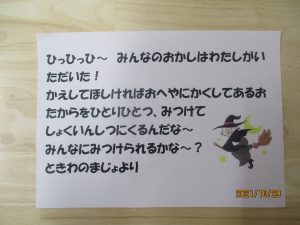 ひっひっひ～　みんなのおかしはわたしがい
ただいた！
かえしてほしければおへやにかくしてあるお
たからをひとりひとつ、みつけて
しょくいんしつにくるんだな～
みんなにみつけられるかな～？
ときわのまじょより
2021/10/29